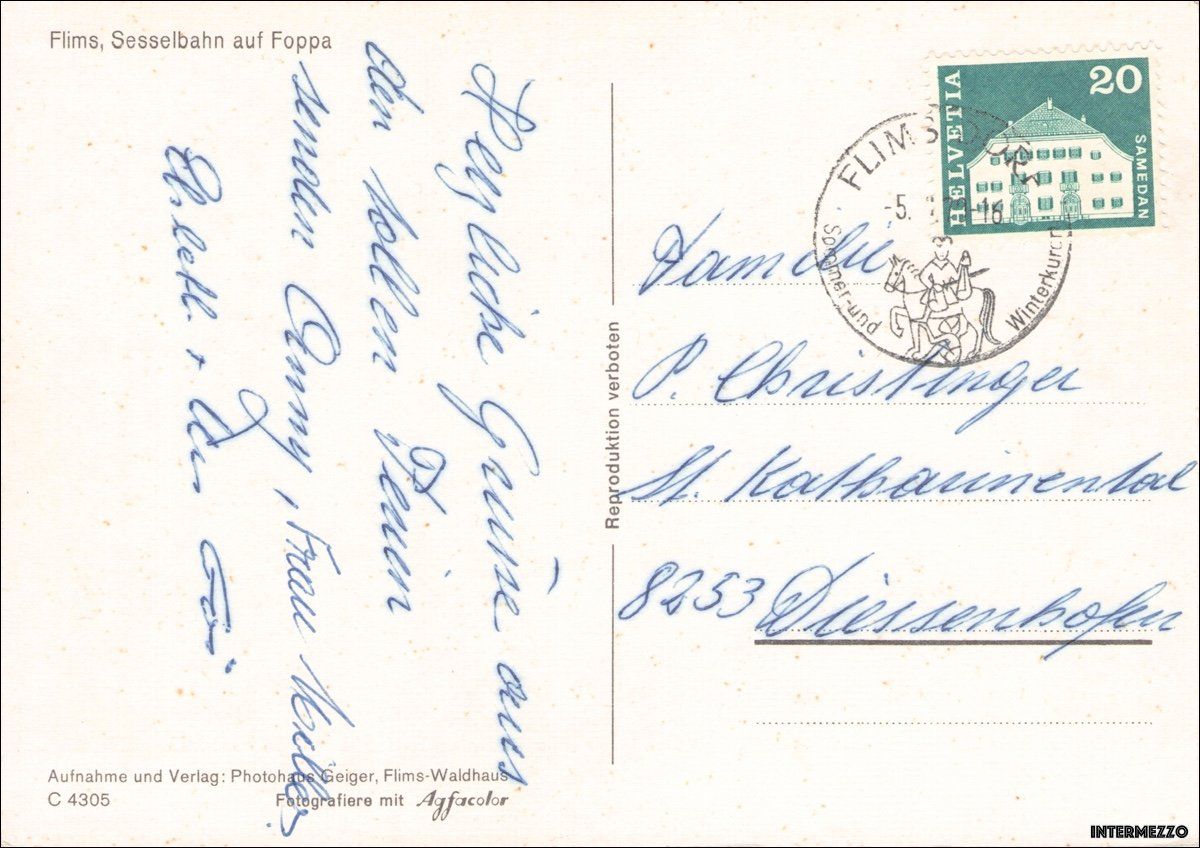 Flims, Sesselbahn auf Foppa
Herzliche Grüsse aus
den tollen Ferien
senden Anny, Frau Müller,
+
Aufnahme und Verlag: Photohaus Geiger, Flims-Waldhaus
C 4305
Fotografiere mit Agfacolor
Reproduktion verboten
HELVETIA
20
SAMEDAN
FLIMS DORF
-5. -16
Sommer-und Winterkurort
Familie
P. Christinger
St. Katharinental
8253 Diessenhofen
INTERMEZZO